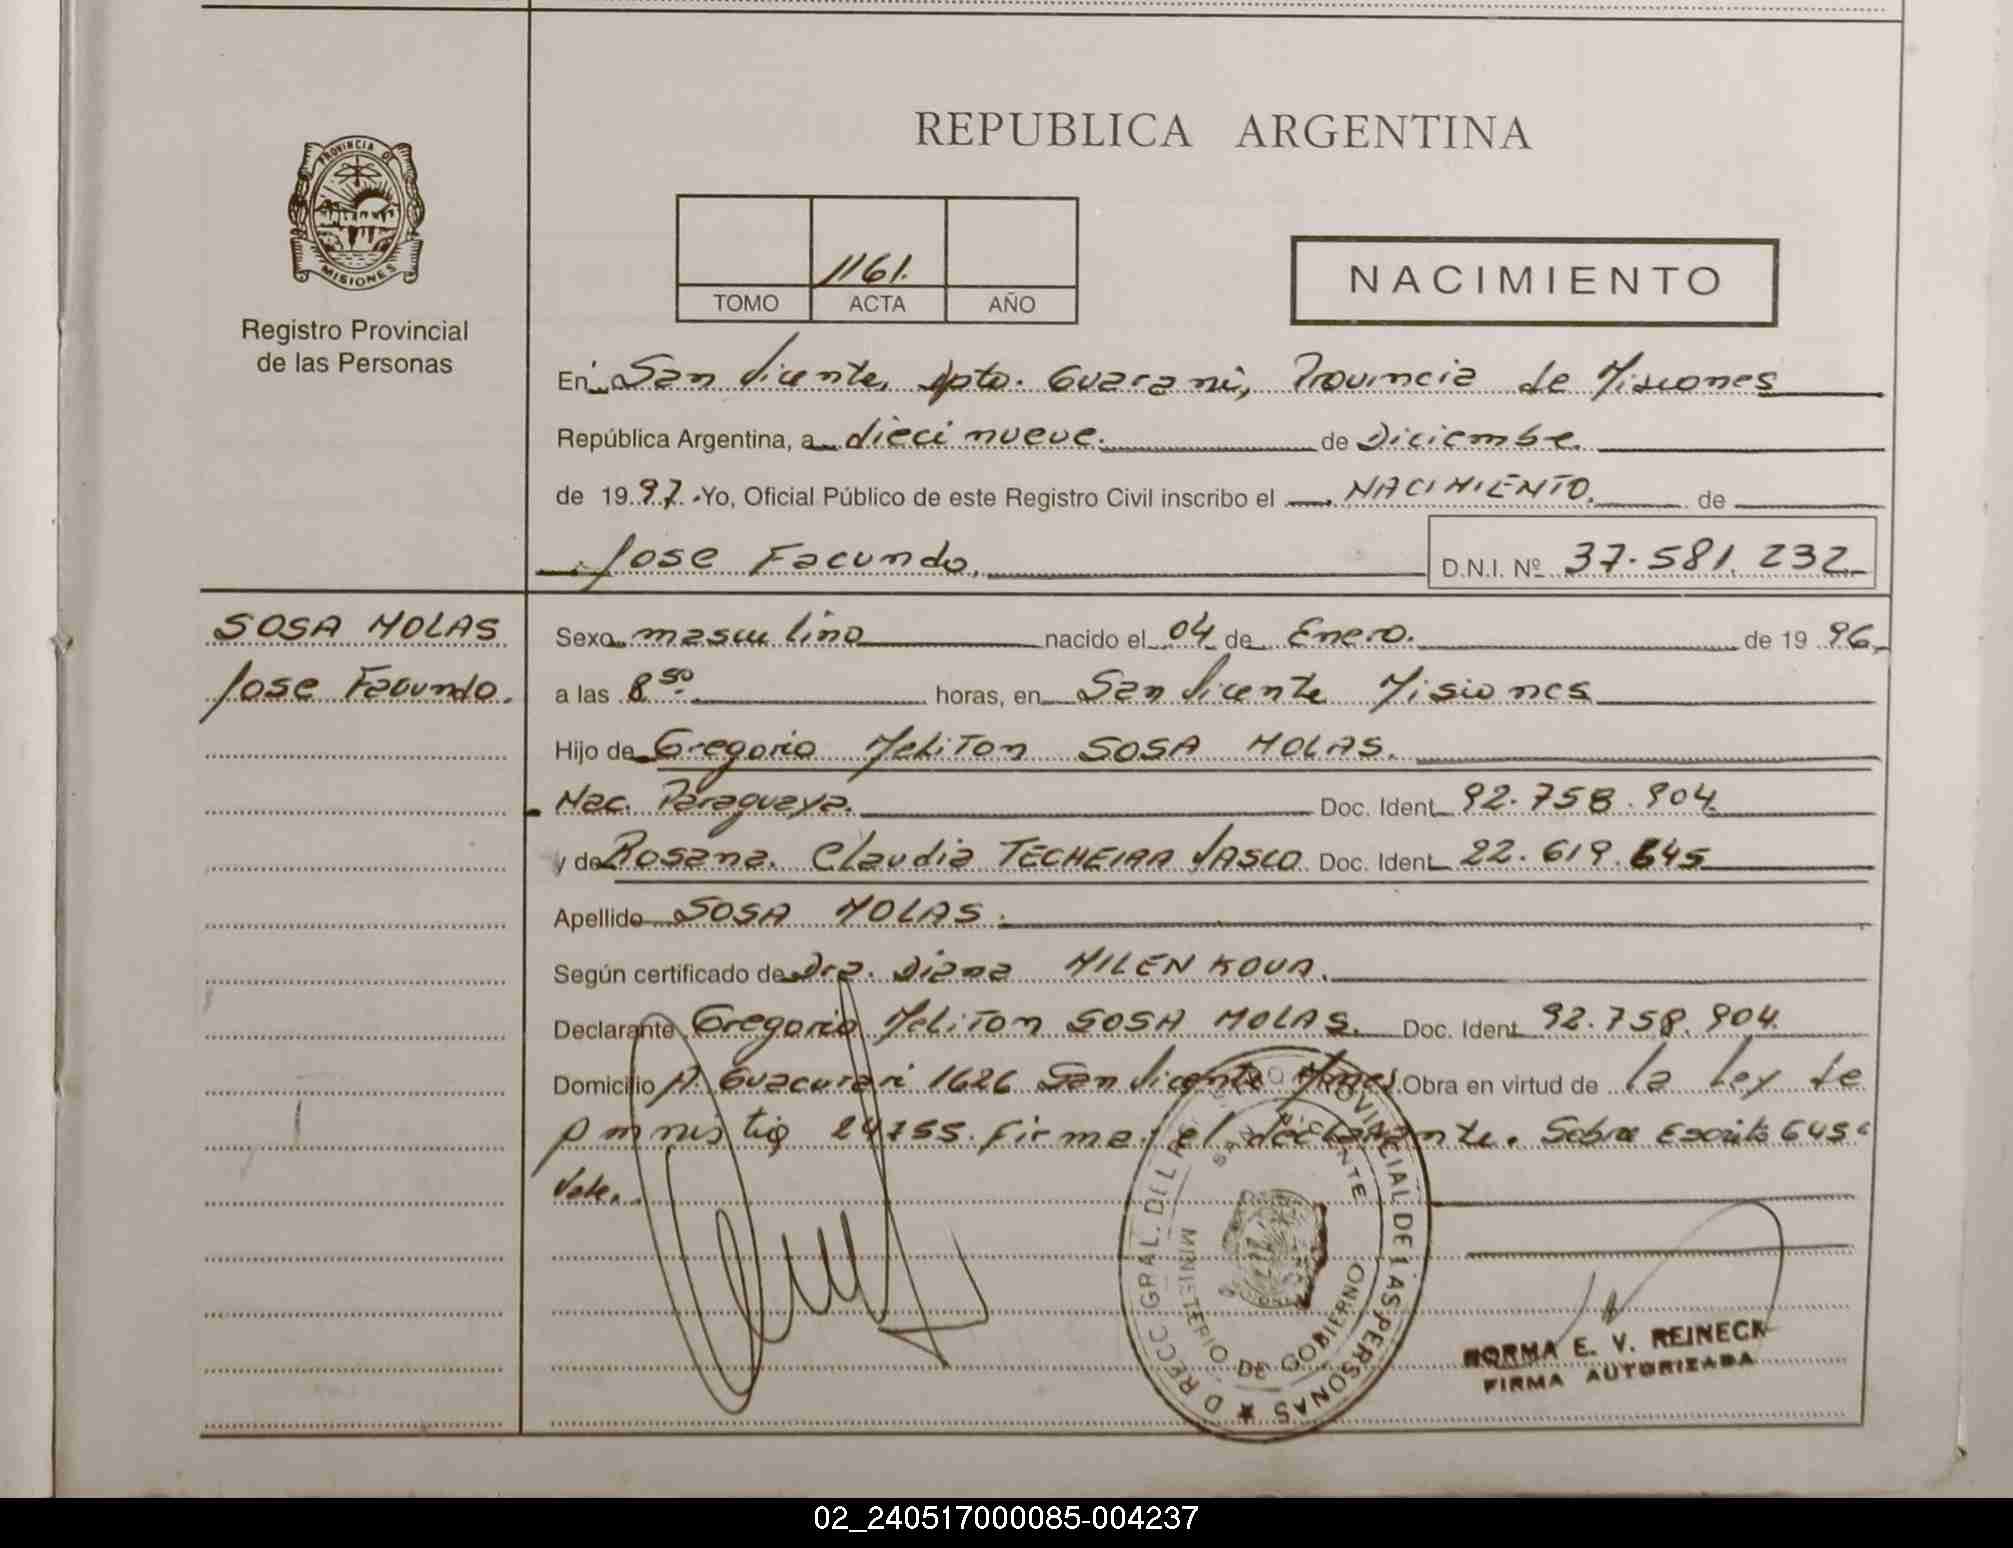 REPUBLICA ARGENTINA
PROVINCIA DE
MISIONES
Registro Provincial
de las Personas
1161.
TOMO ACTA AÑO
NACIMIENTO
En San Vicente, Dpto. Guarani, Provincia de Misiones
República Argentina, a diecinueve. de Diciembre.
de 19 97. Yo, Oficial Público de este Registro Civil inscribo el NACIMIENTO. de
Jose Facundo. D.N.I. Nº 37.581.232
SOSA MOLAS
Jose Facundo.
Sexo masculino nacido el 04 de Enero. de 19 96,
a las 8 50 horas, en San Vicente Misiones
Hijo de Gregorio Meliton SOSA MOLAS.
Nac. Paraguaya. Doc. Ident. 92.758.904
y de Rosana Claudia TECHEIRA VASCO Doc. Ident. 22.619.645
Apellido SOSA MOLAS.
Según certificado de Dra. Diana MILENKOVA.
Declarante Gregorio Meliton SOSA MOLAS. Doc. Ident. 92.758.904
Domicilio A. Guacurari 1626 San Vicente Mnes. Obra en virtud de la Ley de
Amnistia 24755. Firma: el declarante. Sobre Escrito 645:
Vale.
DIRECC. GRAL. DEL REGISTRO PROVINCIAL DE LAS PERSONAS
SAN VICENTE
MINISTERIO DE GOBIERNO
NORMA E. V. REINECK
FIRMA AUTORIZADA
02_240517000085-004237